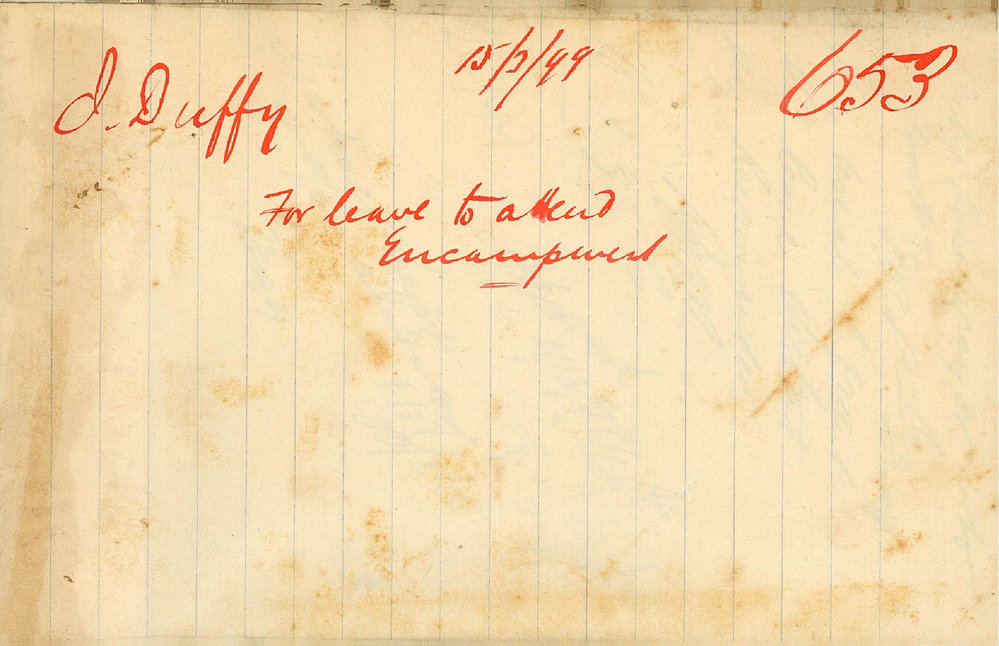 J. Duffy
15/3/99
653
For leave to attend
Encampment